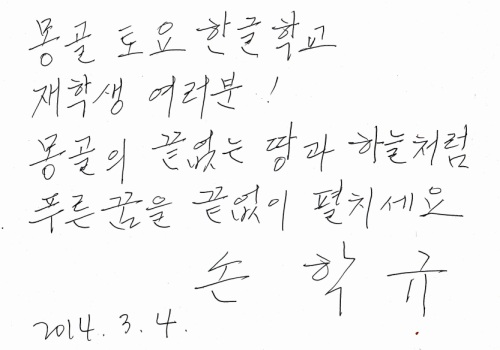 몽골 토요 한글학교
재학생 여러분!
몽골의 끝없는 땅과 하늘처럼
푸른꿈을 끝없이 펼치세요
손 학 규
2014. 3. 4.